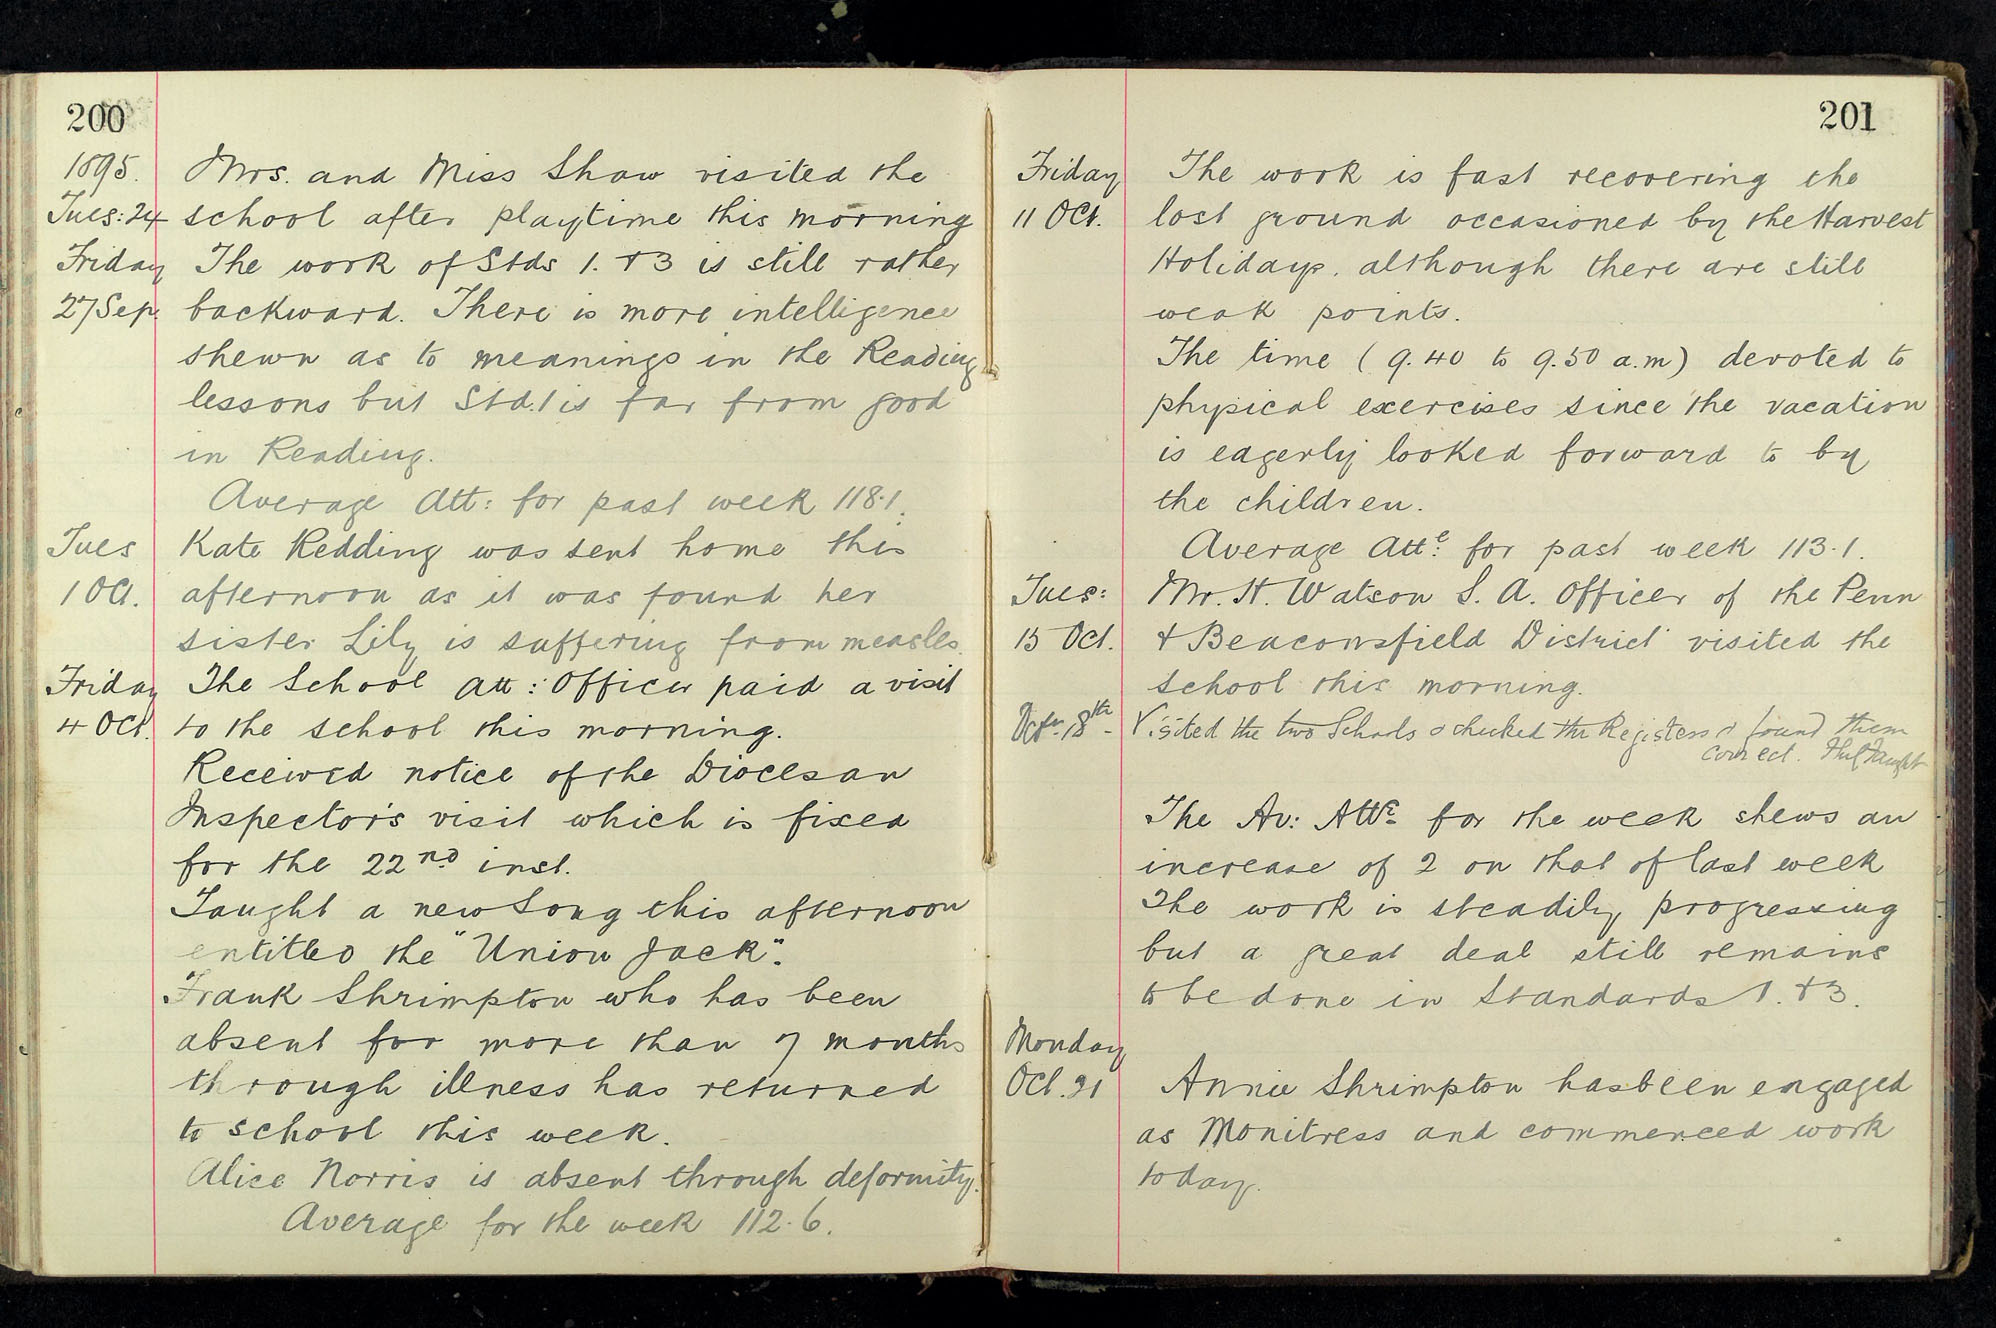 200
1895. Mrs. and Miss Shaw visited the
Tues: 24 school after playtime this morning
Friday The work of Stds 1. + 3 is still rather
27 Sep. backward. There is more intelligence
shewn as to meanings in the Reading
lessons but Std. 1 is far from good
in Reading.
Average Att: for past week 118.1.
Tues Kate Redding was sent home this
1 Oct. afternoon as it was found her
sister Lily is suffering from measles.
Friday The School Att: Officer paid a visit
4 Oct. to the school this morning.
Received notice of the Diocesan
Inspector's visit which is fixed
for the 22nd inst.
Taught a new Song this afternoon
entitled the "Union Jack".
Frank Shrimpton who has been
absent for more than 7 months
through illness has returned
to school this week.
Alice Norris is absent through deformity.
Average for the week 112.6.
201
Friday The work is fast recovering the
11 Oct. lost ground occasioned by the Harvest
Holidays, although there are still
weak points.
The time (9.40 to 9.50 a.m) devoted to
physical exercises since the vacation
is eagerly looked forward to by
the children.
Average Atte: for past week 113.1.
Tues: Mr. H. Watson S. A. Officer of the Penn
15 Oct. + Beaconsfield District visited the
school this morning.
Octr. 18th Visited the two Schools & checked the Registers & found them
correct.
The Av: Attce for the week shews an
increase of 2 on that of last week
The work is steadily progressing
but a great deal still remains
to be done in Standards 1. + 3.
Monday
Oct. 21 Annie Shrimpton has been engaged
as Monitress and commenced work
today.